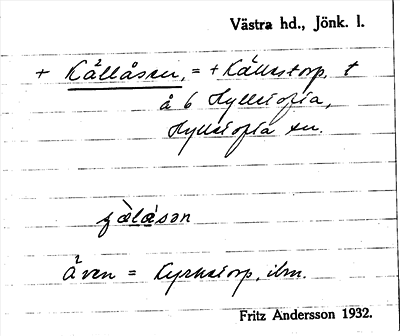 Västra hd., Jönk. l.
+ Källåsen, = + Källstorp, t
å 6 Hylletofta,
Hylletofta sn.
även = Kyrketorp, ibm.
Fritz Andersson 1932.